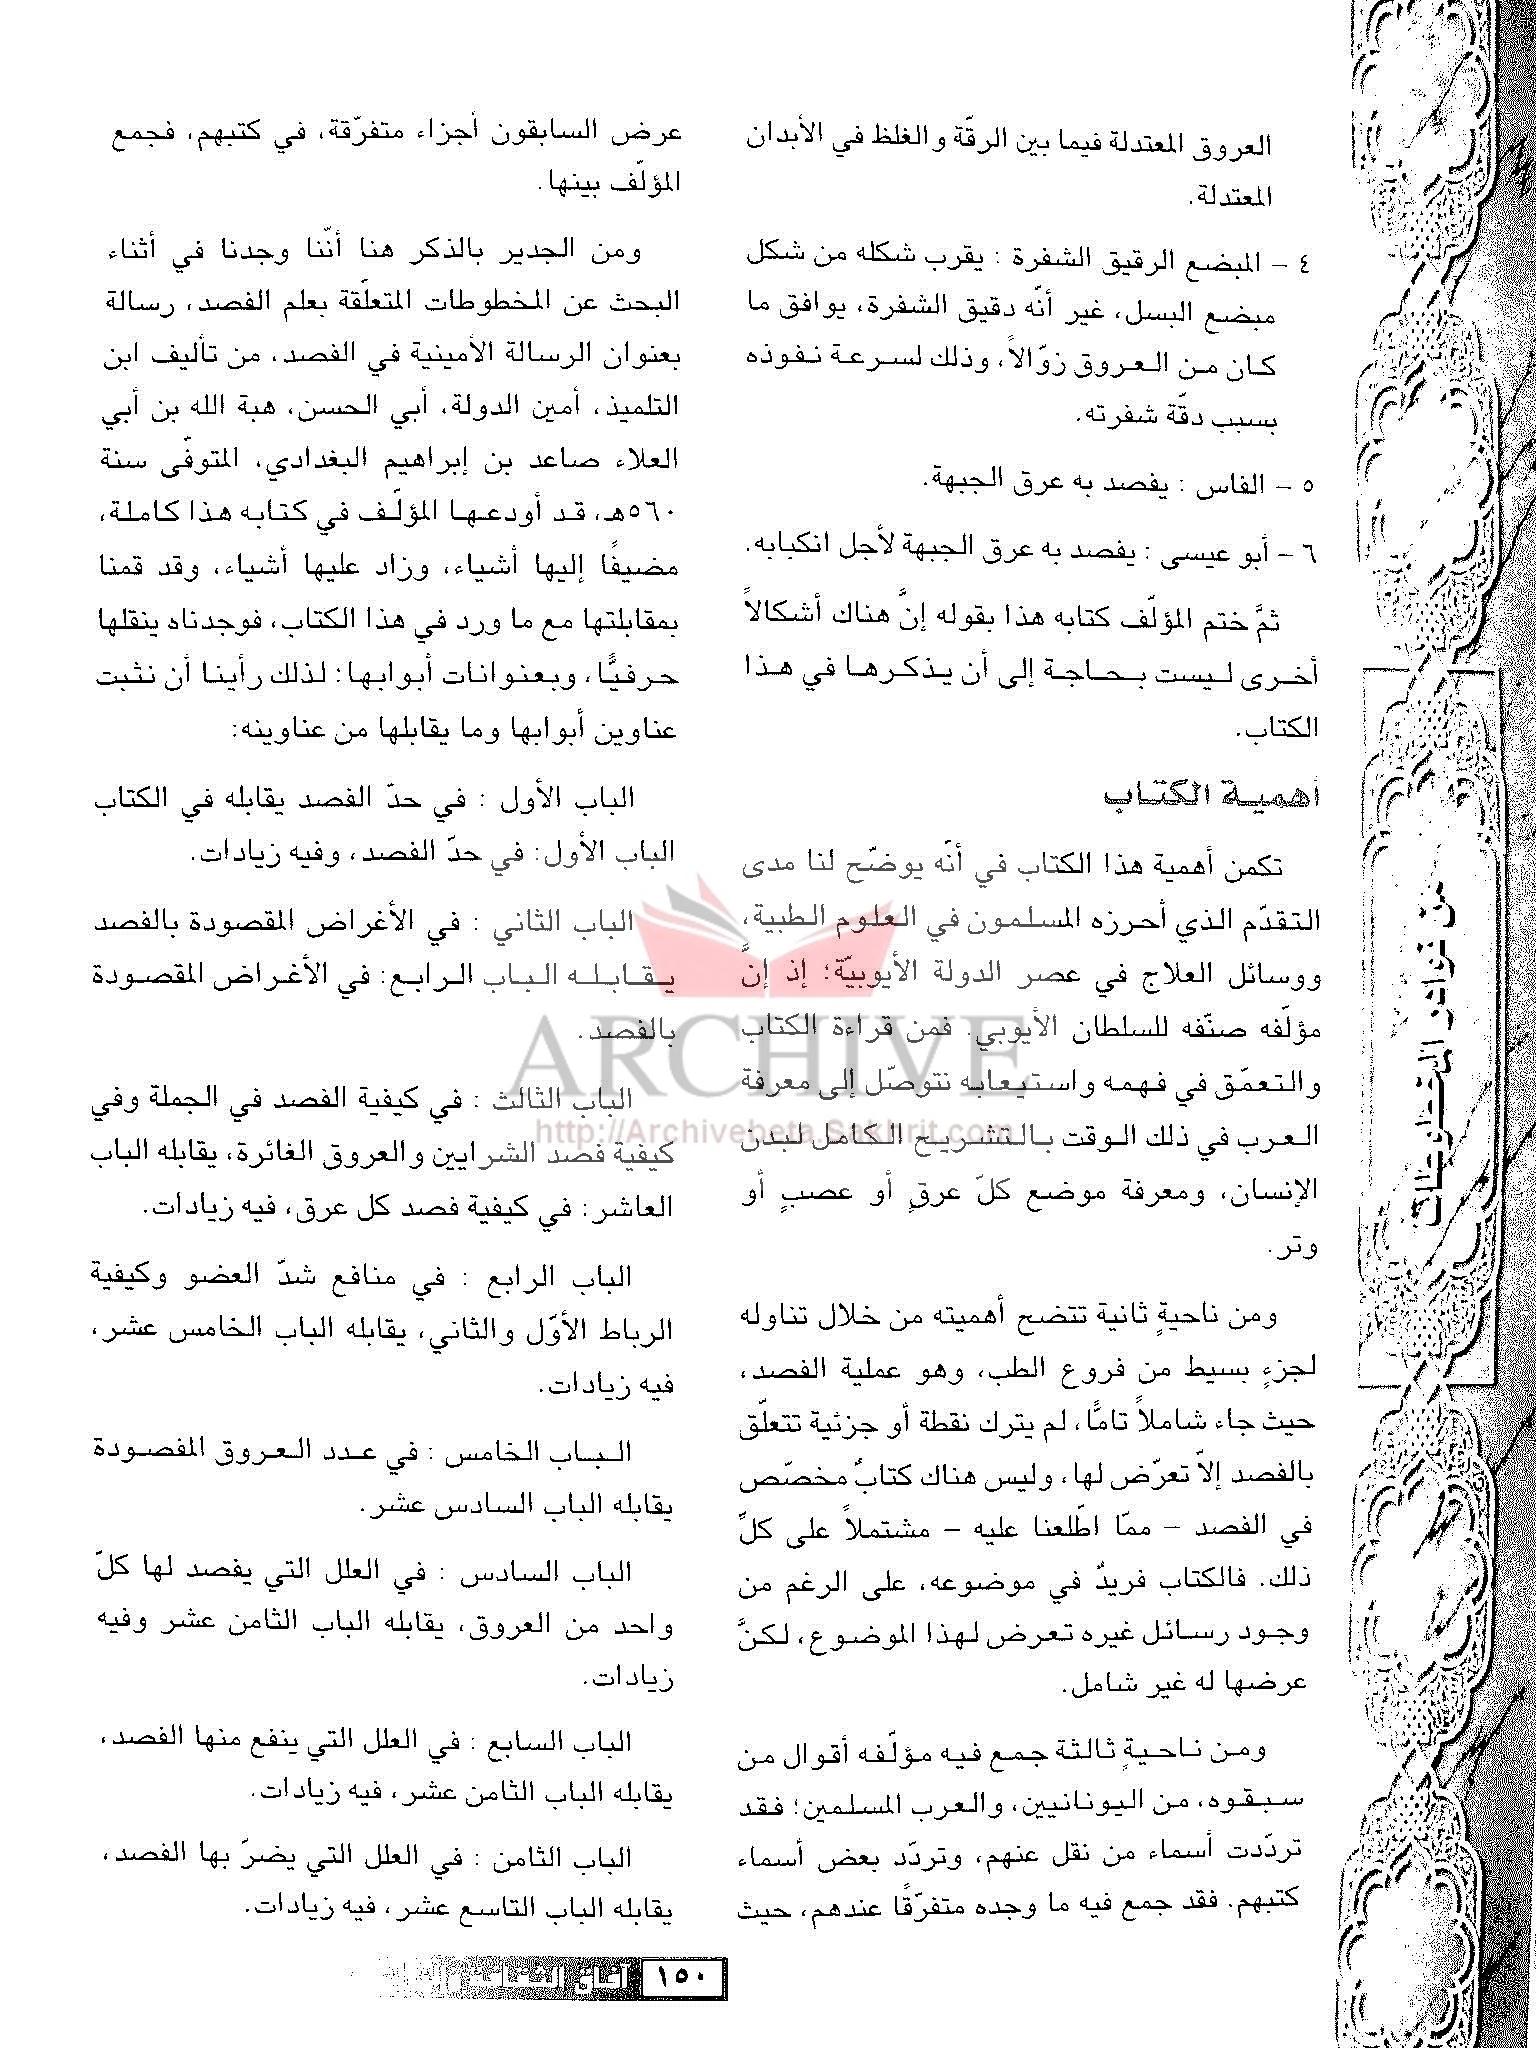 العروق المعتدلة فيما بين الرقّة والغلظ في الأبدان
المعتدلة.
٤ – المبضع الرقيق الشفرة : يقرب شكله من شكل
مبضع البسل، غير أنّه دقيق الشفرة، يوافق ما
كان من العروق زوّالاً، وذلك لسرعة نفوذه
بسبب دقّة شفرته.
٥ – الفاس : يفصد به عرق الجبهة.
٦ – أبو عيسى : يفصد به عرق الجبهة لأجل انكبابه.
ثمَّ ختم المؤلّف كتابه هذا بقوله إنَّ هناك أشكالاً
أخرى ليست بحاجة إلى أن يذكرها في هذا
الكتاب.
أهمية الكتاب
تكمن أهمية هذا الكتاب في أنّه يوضّح لنا مدى
التقدّم الذي أحرزه المسلمون في العلوم الطبية،
ووسائل العلاج في عصر الدولة الأيوبيّة؛ إذ إنَّ
مؤلّفه صنّفه للسلطان الأيوبي. فمن قراءة الكتاب
والتعمّق في فهمه واستيعابه نتوصّل إلى معرفة
العرب في ذلك الوقت بالتشريح الكامل لبدن
الإنسان، ومعرفة موضع كلّ عرقٍ أو عصبٍ أو
وتر.
ومن ناحيةٍ ثانية تتضح أهميته من خلال تناوله
لجزءٍ بسيط من فروع الطب، وهو عملية الفصد،
حيث جاء شاملاً تامًّا، لم يترك نقطة أو جزئية تتعلّق
بالفصد إلاّ تعرّض لها، وليس هناك كتابٌ مخصّص
في الفصد – ممّا اطّلعنا عليه – مشتملاً على كلِّ
ذلك. فالكتاب فريدٌ في موضوعه، على الرغم من
وجود رسائل غيره تعرض لهذا الموضوع، لكنَّ
عرضها له غير شامل.
ومن ناحيةٍ ثالثة جمع فيه مؤلّفه أقوال من
سبقوه، من اليونانيين، والعرب المسلمين؛ فقد
تردّدت أسماء من نقل عنهم، وتردّد بعض أسماء
كتبهم. فقد جمع فيه ما وجده متفرّقًا عندهم، حيث
عرض السابقون أجزاء متفرّقة، في كتبهم، فجمع
المؤلّف بينها.
ومن الجدير بالذكر هنا أنّنا وجدنا في أثناء
البحث عن المخطوطات المتعلّقة بعلم الفصد، رسالة
بعنوان الرسالة الأمينية في الفصد، من تأليف ابن
التلميذ، أمين الدولة، أبي الحسن، هبة الله بن أبي
العلاء صاعد بن إبراهيم البغدادي، المتوفّى سنة
٥٦٠هـ، قد أودعها المؤلّف في كتابه هذا كاملة،
مضيفًا إليها أشياء، وزاد عليها أشياء، وقد قمنا
بمقابلتها مع ما ورد في هذا الكتاب، فوجدناه ينقلها
حرفيًّا، وبعنوانات أبوابها؛ لذلك رأينا أن نثبت
عناوين أبوابها وما يقابلها من عناوينه:
الباب الأول : في حدّ الفصد يقابله في الكتاب
الباب الأول: في حدّ الفصد، وفيه زيادات.
الباب الثاني : في الأغراض المقصودة بالفصد
يقابله الباب الرابع: في الأغراض المقصودة
بالفصد.
الباب الثالث : في كيفية الفصد في الجملة وفي
كيفية فصد الشرايين والعروق الغائرة، يقابله الباب
العاشر: في كيفية فصد كل عرق، فيه زيادات.
الباب الرابع : في منافع شدّ العضو وكيفية
الرباط الأوّل والثاني، يقابله الباب الخامس عشر،
فيه زيادات.
الباب الخامس : في عدد العروق المفصودة
يقابله الباب السادس عشر.
الباب السادس : في العلل التي يفصد لها كلّ
واحد من العروق، يقابله الباب الثامن عشر وفيه
زيادات.
الباب السابع : في العلل التي ينفع منها الفصد،
يقابله الباب الثامن عشر، فيه زيادات.
الباب الثامن : في العلل التي يضرّ بها الفصد،
يقابله الباب التاسع عشر، فيه زيادات.
من نوادر المخطوطات
ARCHIVE
http://Archivebeta.Sakhrit.com
١٥٠ آفاق الثقافة